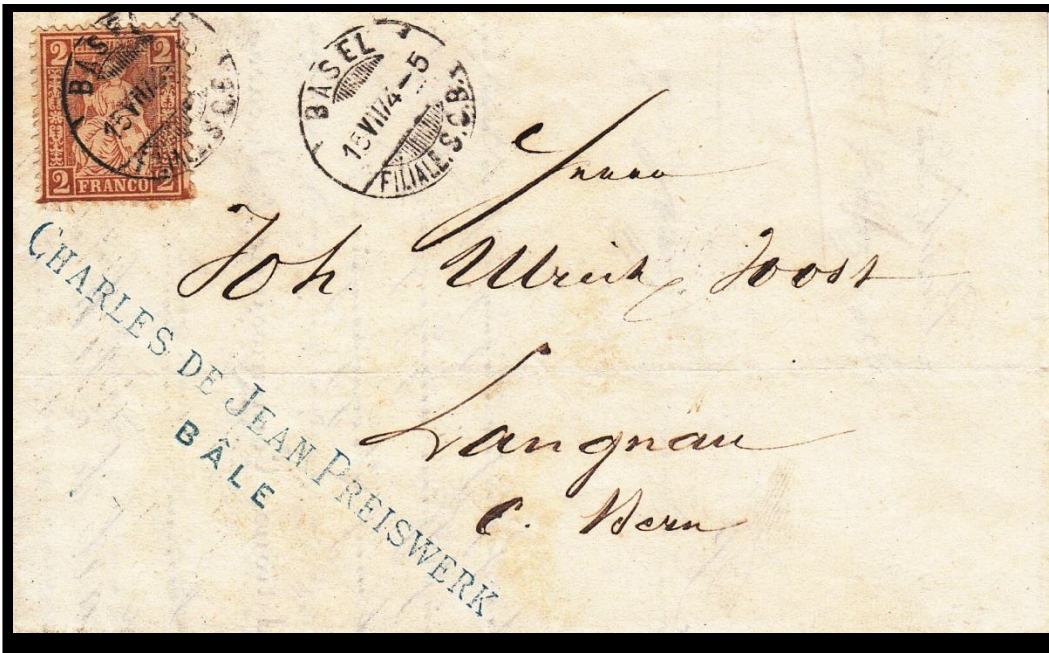 2 2
2 FRANCO 2
BASEL
15 VII 74 - 5
FILIALE. S.C.B.
Herrn
Joh. Ulrich Joost
Langnau
C. Bern
CHARLES DE JEAN PREISWERK
BÂLE